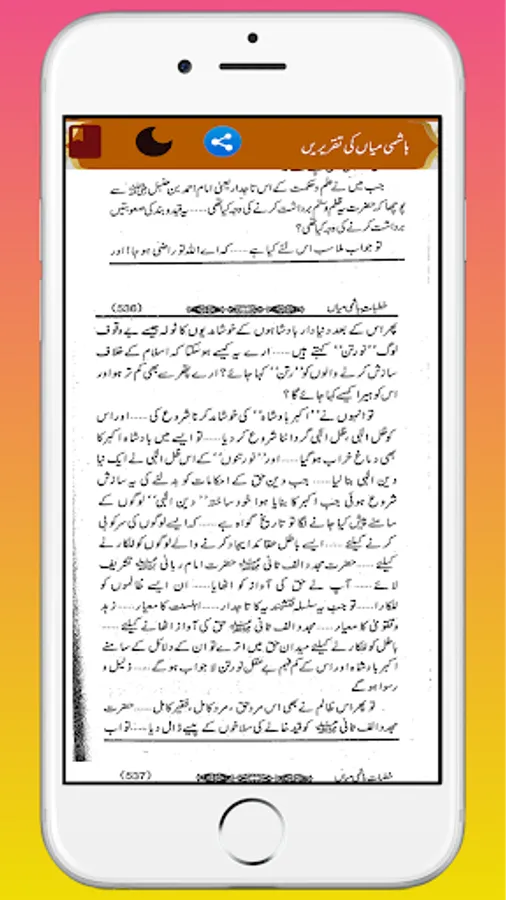 ہاشمی میاں کی تقریریں
جب میں نے علم و حکمت کے اس تاجدار یعنی امام احمد بن حنبل ﷜ سے
پوچھا کہ حضرت یہ ظلم و ستم برداشت کرنے کی وجہ کیا تھی ..... یہ قید و بند کی صعوبتیں
برداشت کرنے کی وجہ کیا تھی؟
تو جواب ملا سب اس لئے کیا ہے .... کہ اے اللہ تو راضی ہو جا! اور
خطبات ہاشمی میاں (536)
پھر اس کے بعد دنیا دار بادشاہوں کے خوشامدیوں کا ٹولہ جیسے بے وقوف
لوگ ”نورتن“ کہتے ہیں .... ارے یہ کیسے ہو سکتا کہ اسلام کے خلاف
سازش کرنے والوں کو ”رتن“ کہا جائے؟ ارے پتھر سے بھی کم تر ہو اور
اس کو ہیرا کیسے کہا جائے گا؟
تو انہوں نے ”اکبر بادشاہ“ کی خوشامد کرنا شروع کی .... اور اس
کو ظل الٰہی، ظل الٰہی گرداننا شروع کر دیا .... تو ایسے میں بادشاہ اکبر کا
بھی دماغ خراب ہو گیا .... اور ”نورتنوں“ کے اس ظل الٰہی نے ایک نیا
دین الٰہی بنا لیا .... جب دین حق کے احکامات کو بدلنے کی یہ سازش
شروع ہوئی جب اکبر کا بنایا ہوا خود ساختہ ”دین الٰہی“ لوگوں کے
سامنے پیش کیا جانے لگا تو تاریخ گواہ ہے .... کہ ایسے لوگوں کی سرکوبی
کرنے کیلئے .... ایسے باطل عقائد ایجاد کرنے والے لوگوں کو للکارنے
کیلئے .... حضرت مجدد الف ثانی ﷜ حضرت امام ربانی ﷜ تشریف
لائے .... آپ نے حق کی آواز کو اٹھایا .... ان ایسے ظالموں کو
للکارا .... تو جب یہ سلسلہ نقشبندیہ کا تاجدار .... اہلسنت کا معیار .... زہد
و تقویٰ کا معیار .... مجدد الف ثانی ﷜ حق کی آواز اٹھانے کیلئے ....
باطل کو للکارنے کیلئے میدان حق میں اترے تو ان کے دلائل کے سامنے
اکبر بادشاہ اور اس کے کم فہم بے عقل نورتن لا جواب ہو گے .... ذلیل و
رسوا ہو گے
تو پھر اس ظالم نے بھی اس مرد حق، مرد کامل، فقیر کامل .... حضرت
مجدد الف ثانی ﷜ کو قید خانے کی سلاخوں کے پیچھے ڈال دیا .... تو اب
خطبات ہاشمی میاں (537)